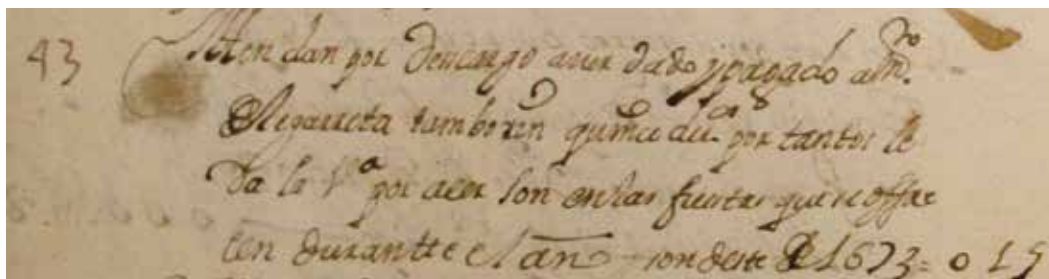 43 Yten dan por Descargo auer dado y pagado a mn.º
Olegarreta tamborin quince du.ᵒˢ por tantos le
Da la V.ª por acer son en las fiestas que se offre
cen durantte el año son deste de 1673 = 0 15